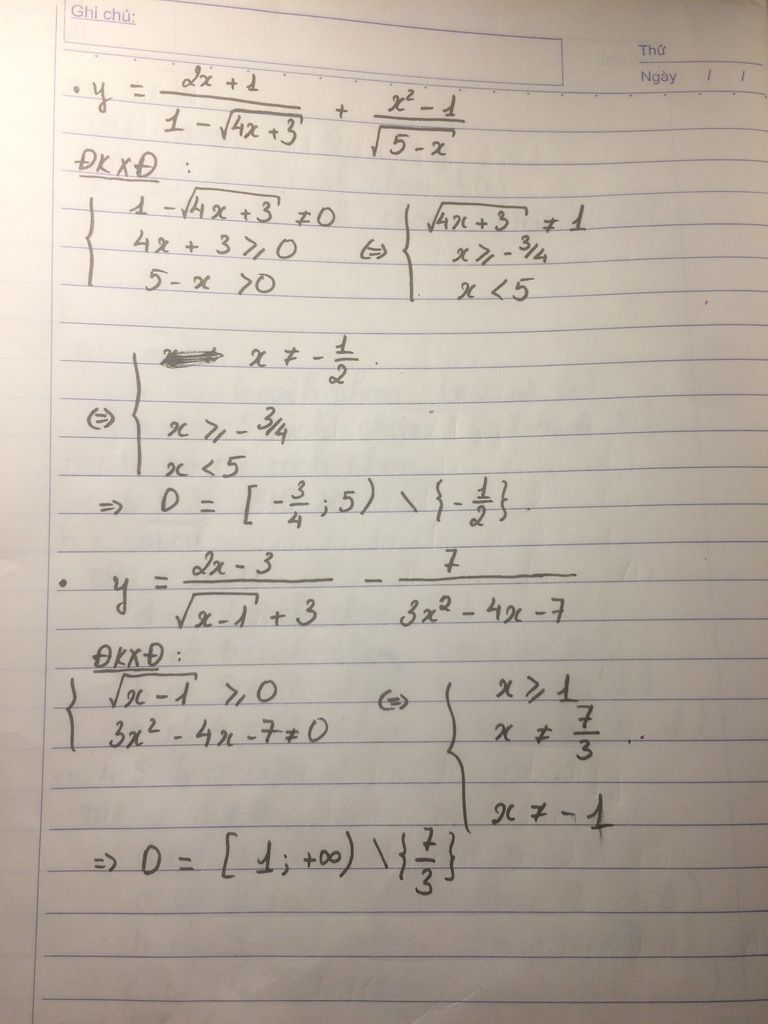 Ghi chú:
Thứ
Ngày / /
• y = (2x + 1)/(1 - √(4x + 3)) + (x² - 1)/√(5 - x)
ĐKXĐ :
{ 1 - √(4x + 3) ≠ 0 <=> { √(4x + 3) ≠ 1
4x + 3 ⩾ 0 x ⩾ -3/4
5 - x > 0 x < 5
x ≠ - 1/2 .
<=> { x ⩾ - 3/4
x < 5
=> D = [ - 3/4 ; 5 ) \ { - 1/2 }
• y = (2x - 3)/(√(x - 1) + 3) - 7/(3x² - 4x - 7)
ĐKXĐ :
{ √(x - 1) ⩾ 0 <=> { x ⩾ 1
3x² - 4x - 7 ≠ 0 x ≠ 7/3 .
x ≠ - 1
=> D = [ 1 ; +∞ ) \ { 7/3 }